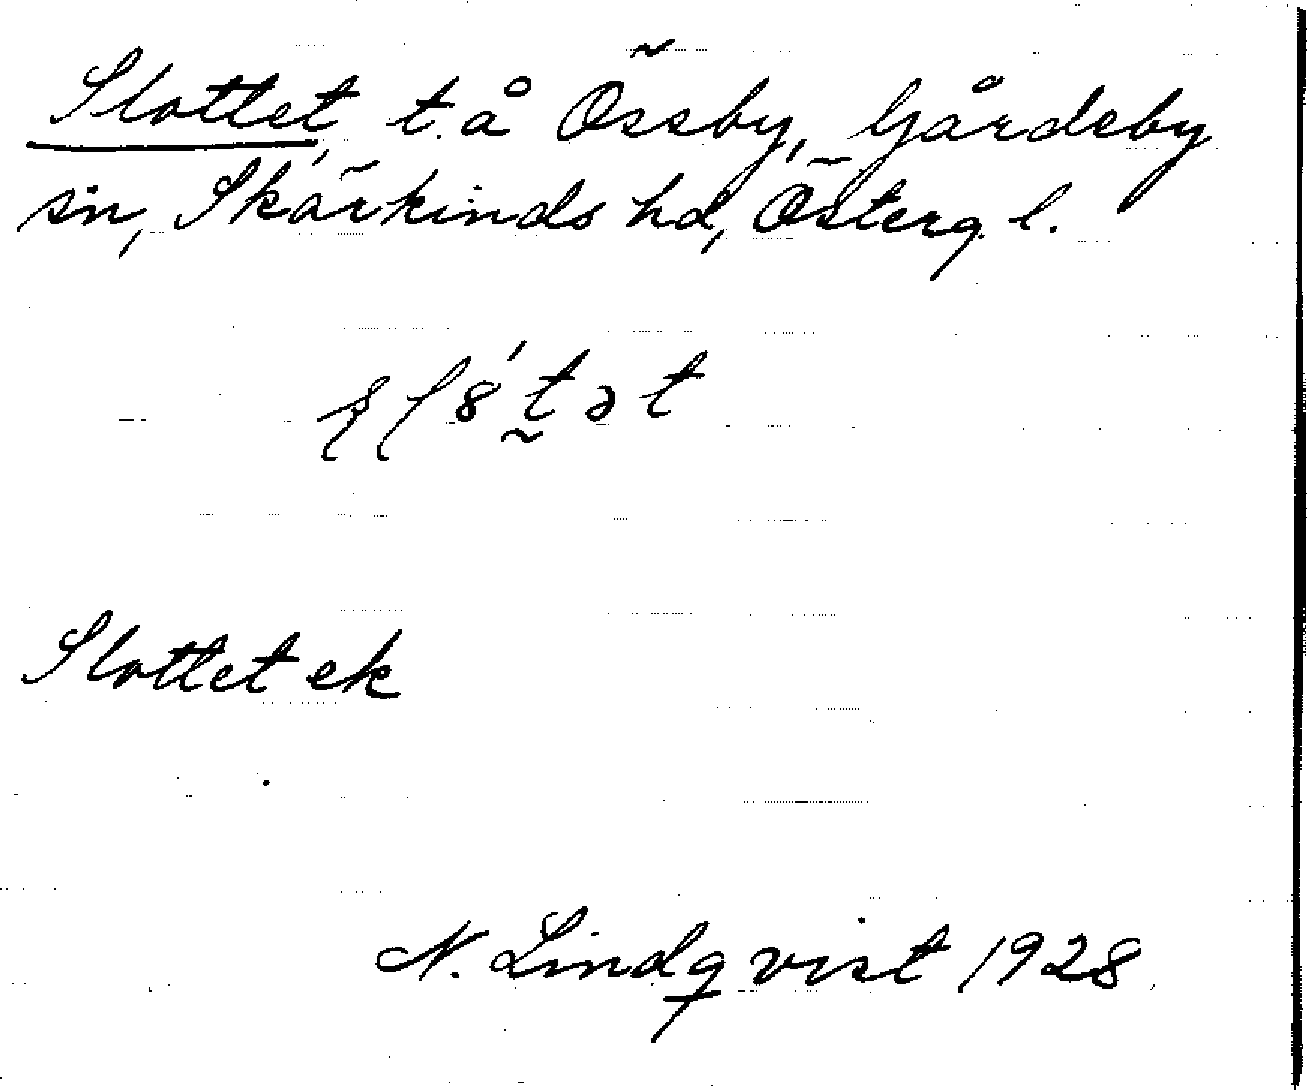 Slottet, t. å Össby, Gårdeby
sn, Skärkinds hd, Österg. l.
Slottet ek
N. Lindqvist 1928